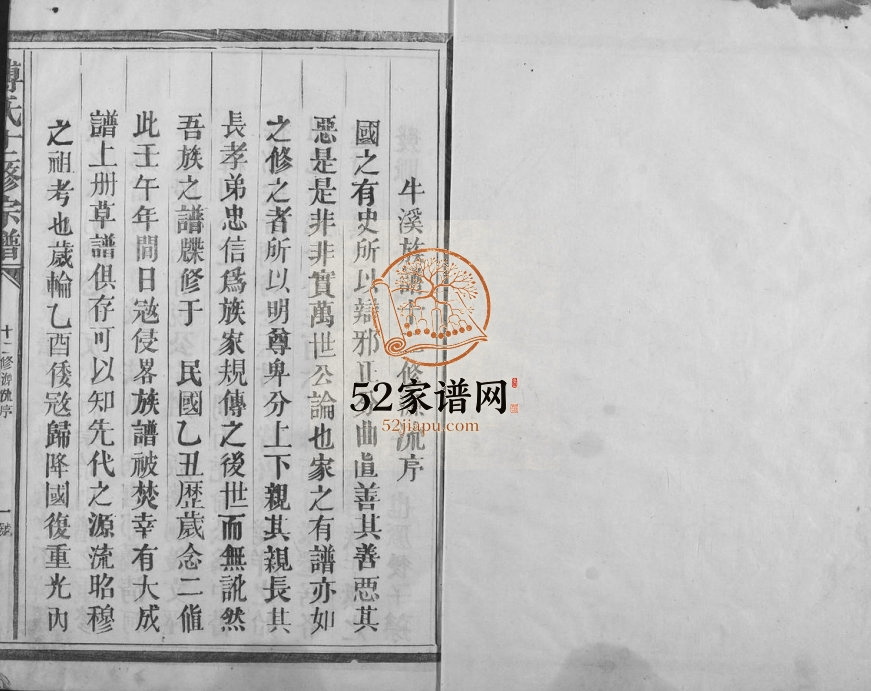 牛溪族譜十 修 流序
國之有史所以辯邪正 曲直善其善惡其
惡是是非非實萬世公論也家之有譜亦如
之修之者所以明尊卑分上下親其親長其
長孝弟忠信爲族家規傳之後世而無訛然
吾族之譜牒修于 民國乙丑歷歲念二值
此壬午年間日寇侵畧族譜被焚幸有大成
譜上册草譜俱存可以知先代之源流昭穆
之祖考也歲輪乙酉倭寇歸降國復重光內
傅氏十二修宗譜
十二修源流序
一號
52家谱网
52jiapu.com